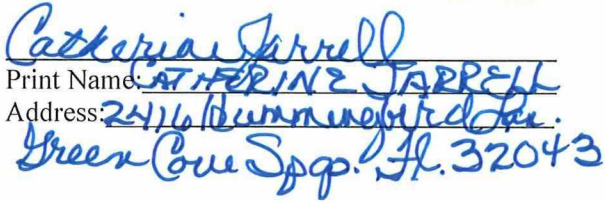 Catherine Jarrell
Print Name: CATHERINE JARRELL
Address: 2416 Hummingbird Lan.
Green Cove Spgs. Fl. 32043